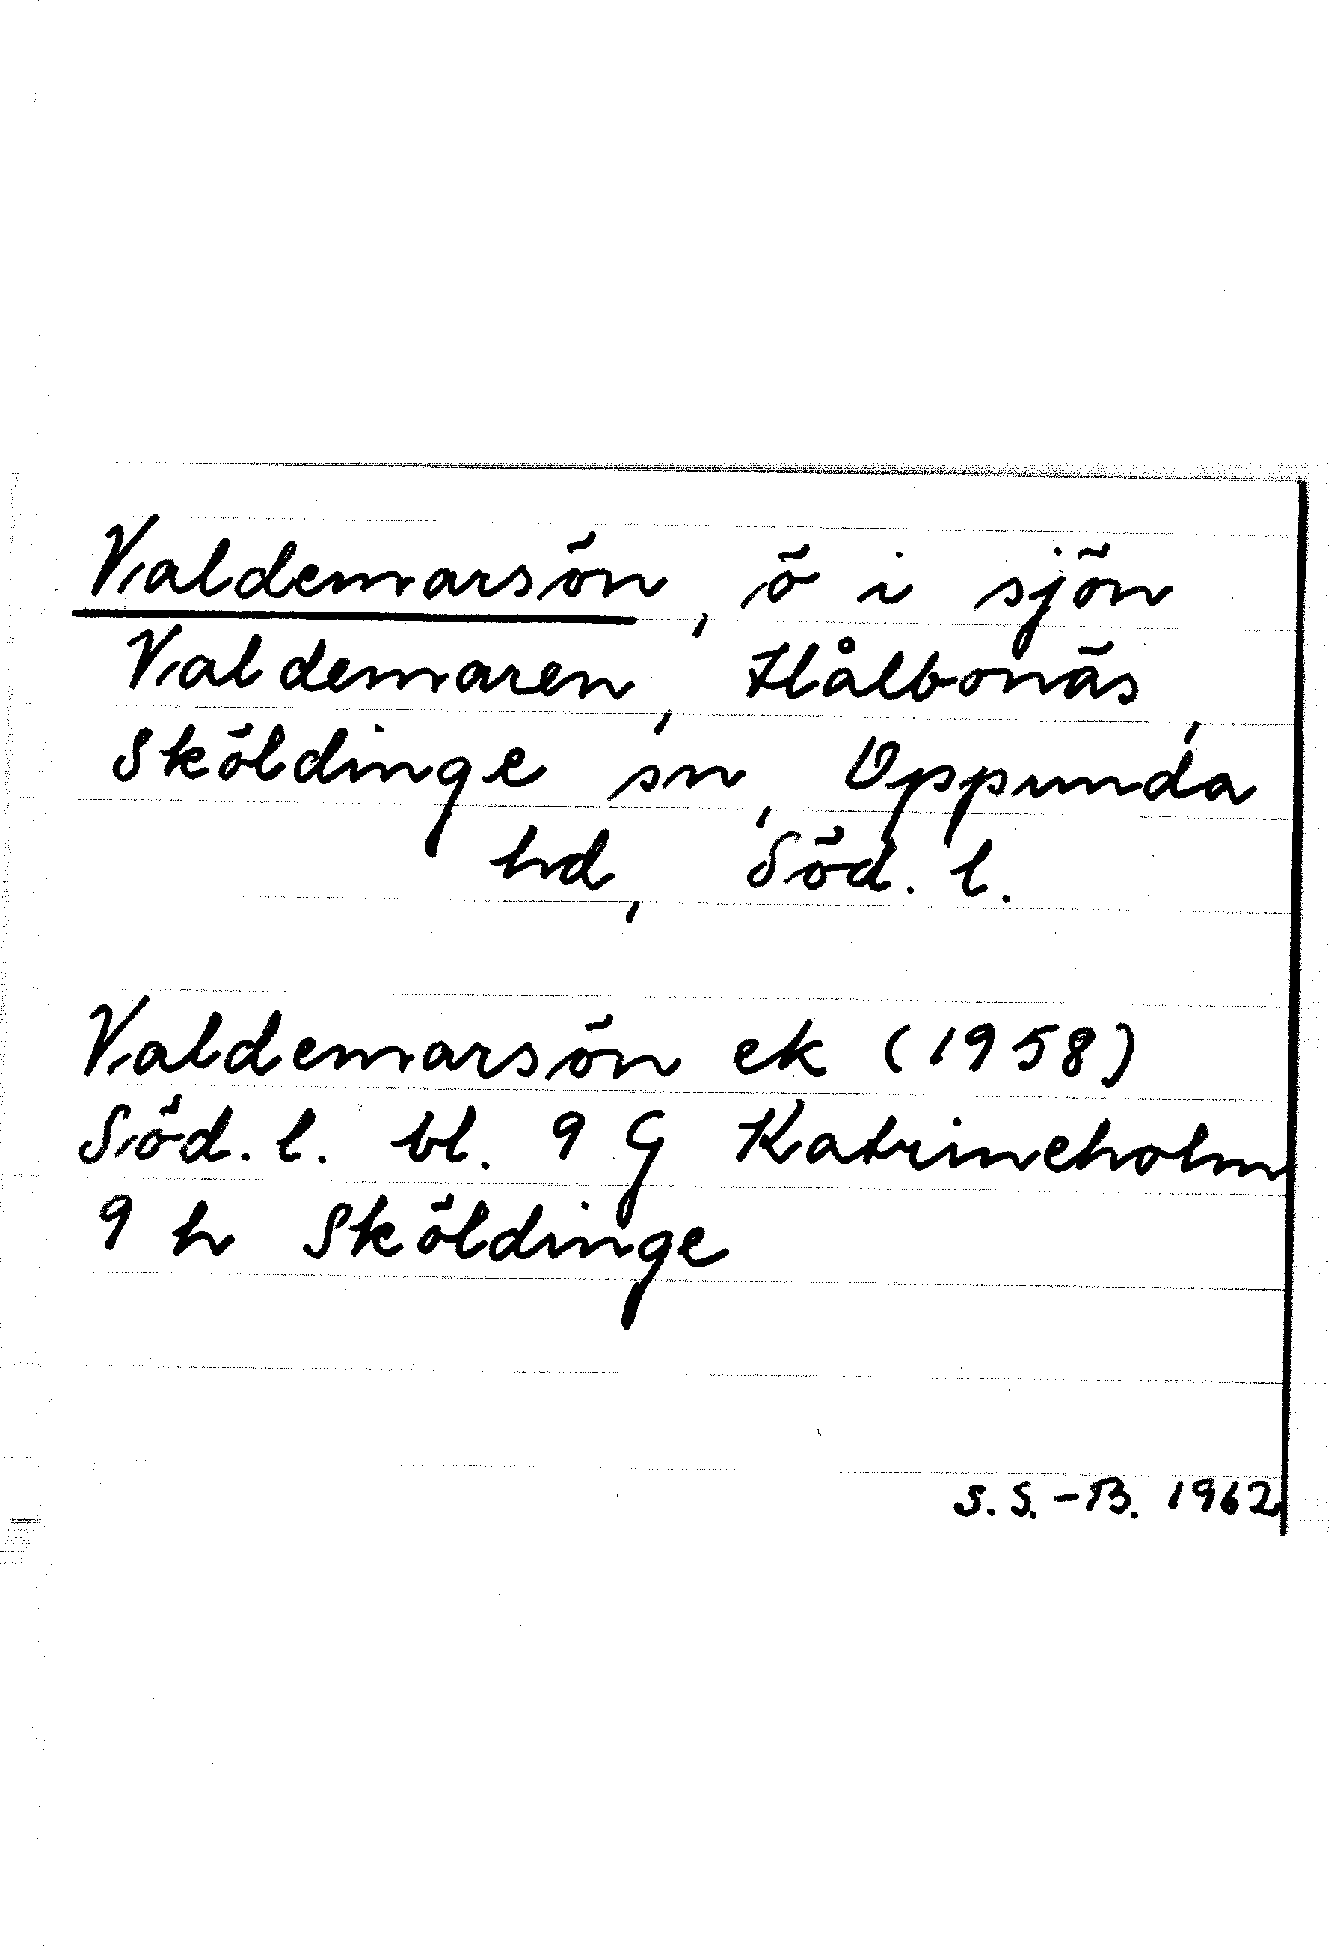 Valdemarsön, ö i sjön
Valdemaren, Hålbonäs,
Sköldinge sn, Oppunda
hd, Söd. l.
Valdemarsön ek (1958)
Söd. l. bl. 9 G Katrineholm
9 h Sköldinge
S. S.-B. 1962